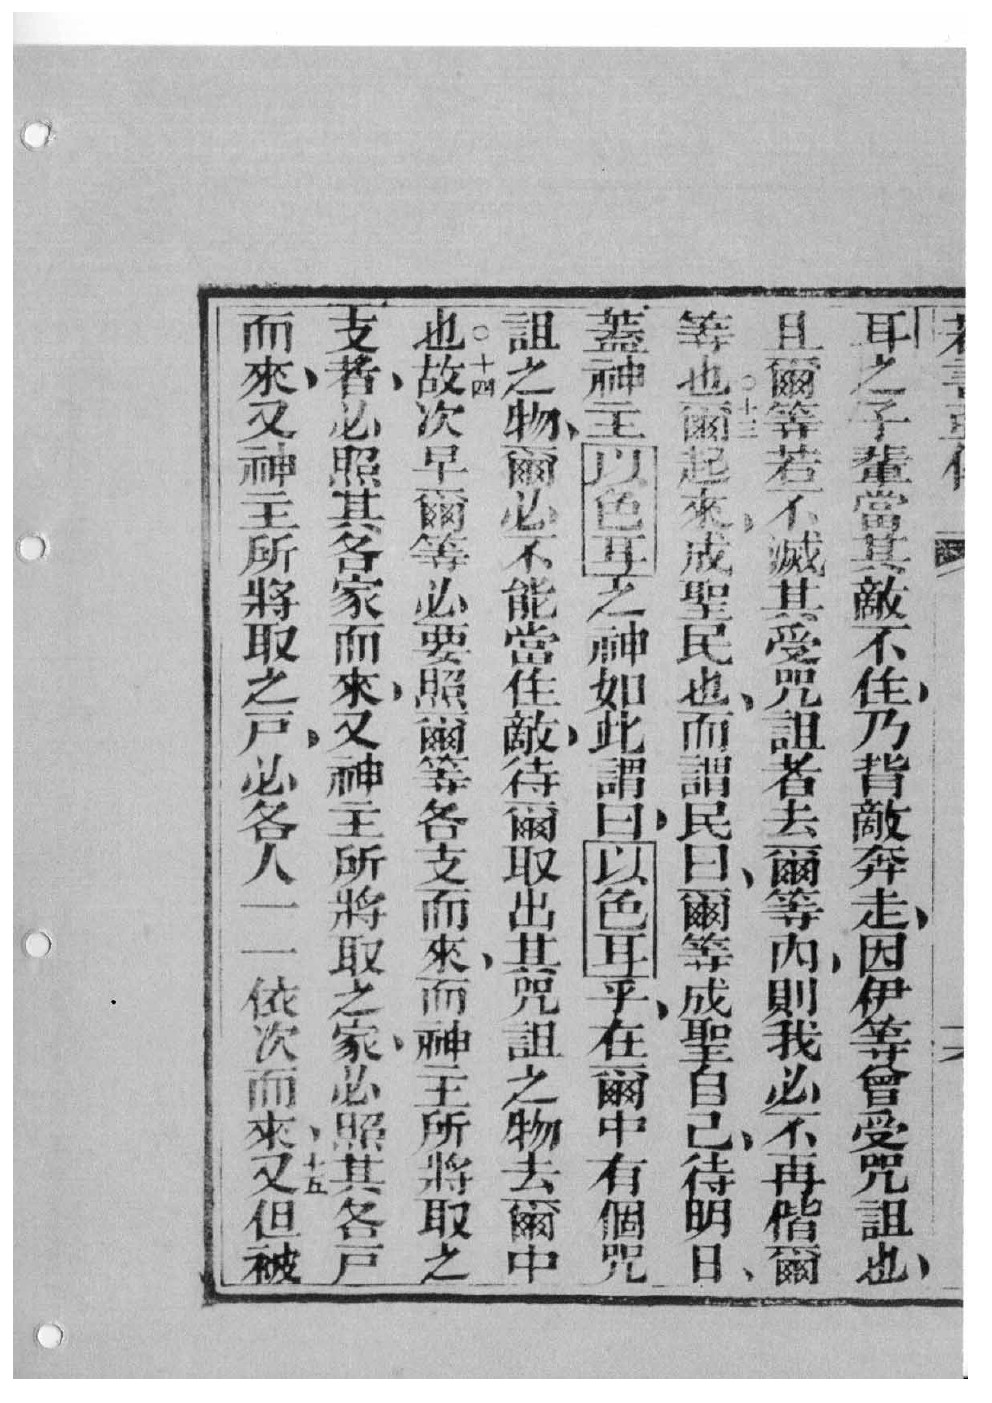 耳之子輩當其敵不住、乃背敵奔走、因伊等曾受咒詛也、
且爾等若不滅其受咒詛者去爾等內、則我必不再偕爾
等也○十三爾起來、成聖民也、而謂民曰、爾等成聖自己、待明日、
蓋神主以色耳之神如此謂曰、以色耳乎、在爾中有個咒
詛之物、爾必不能當住敵、待爾取出其咒詛之物去爾中
也○十四故次早爾等必要照爾等各支而來、而神主所將取之
支者、必照其各家而來、又神主所將取之家、必照其各戶
而來、又神主所將取之戶、必各人一一依次而來、十五又但被